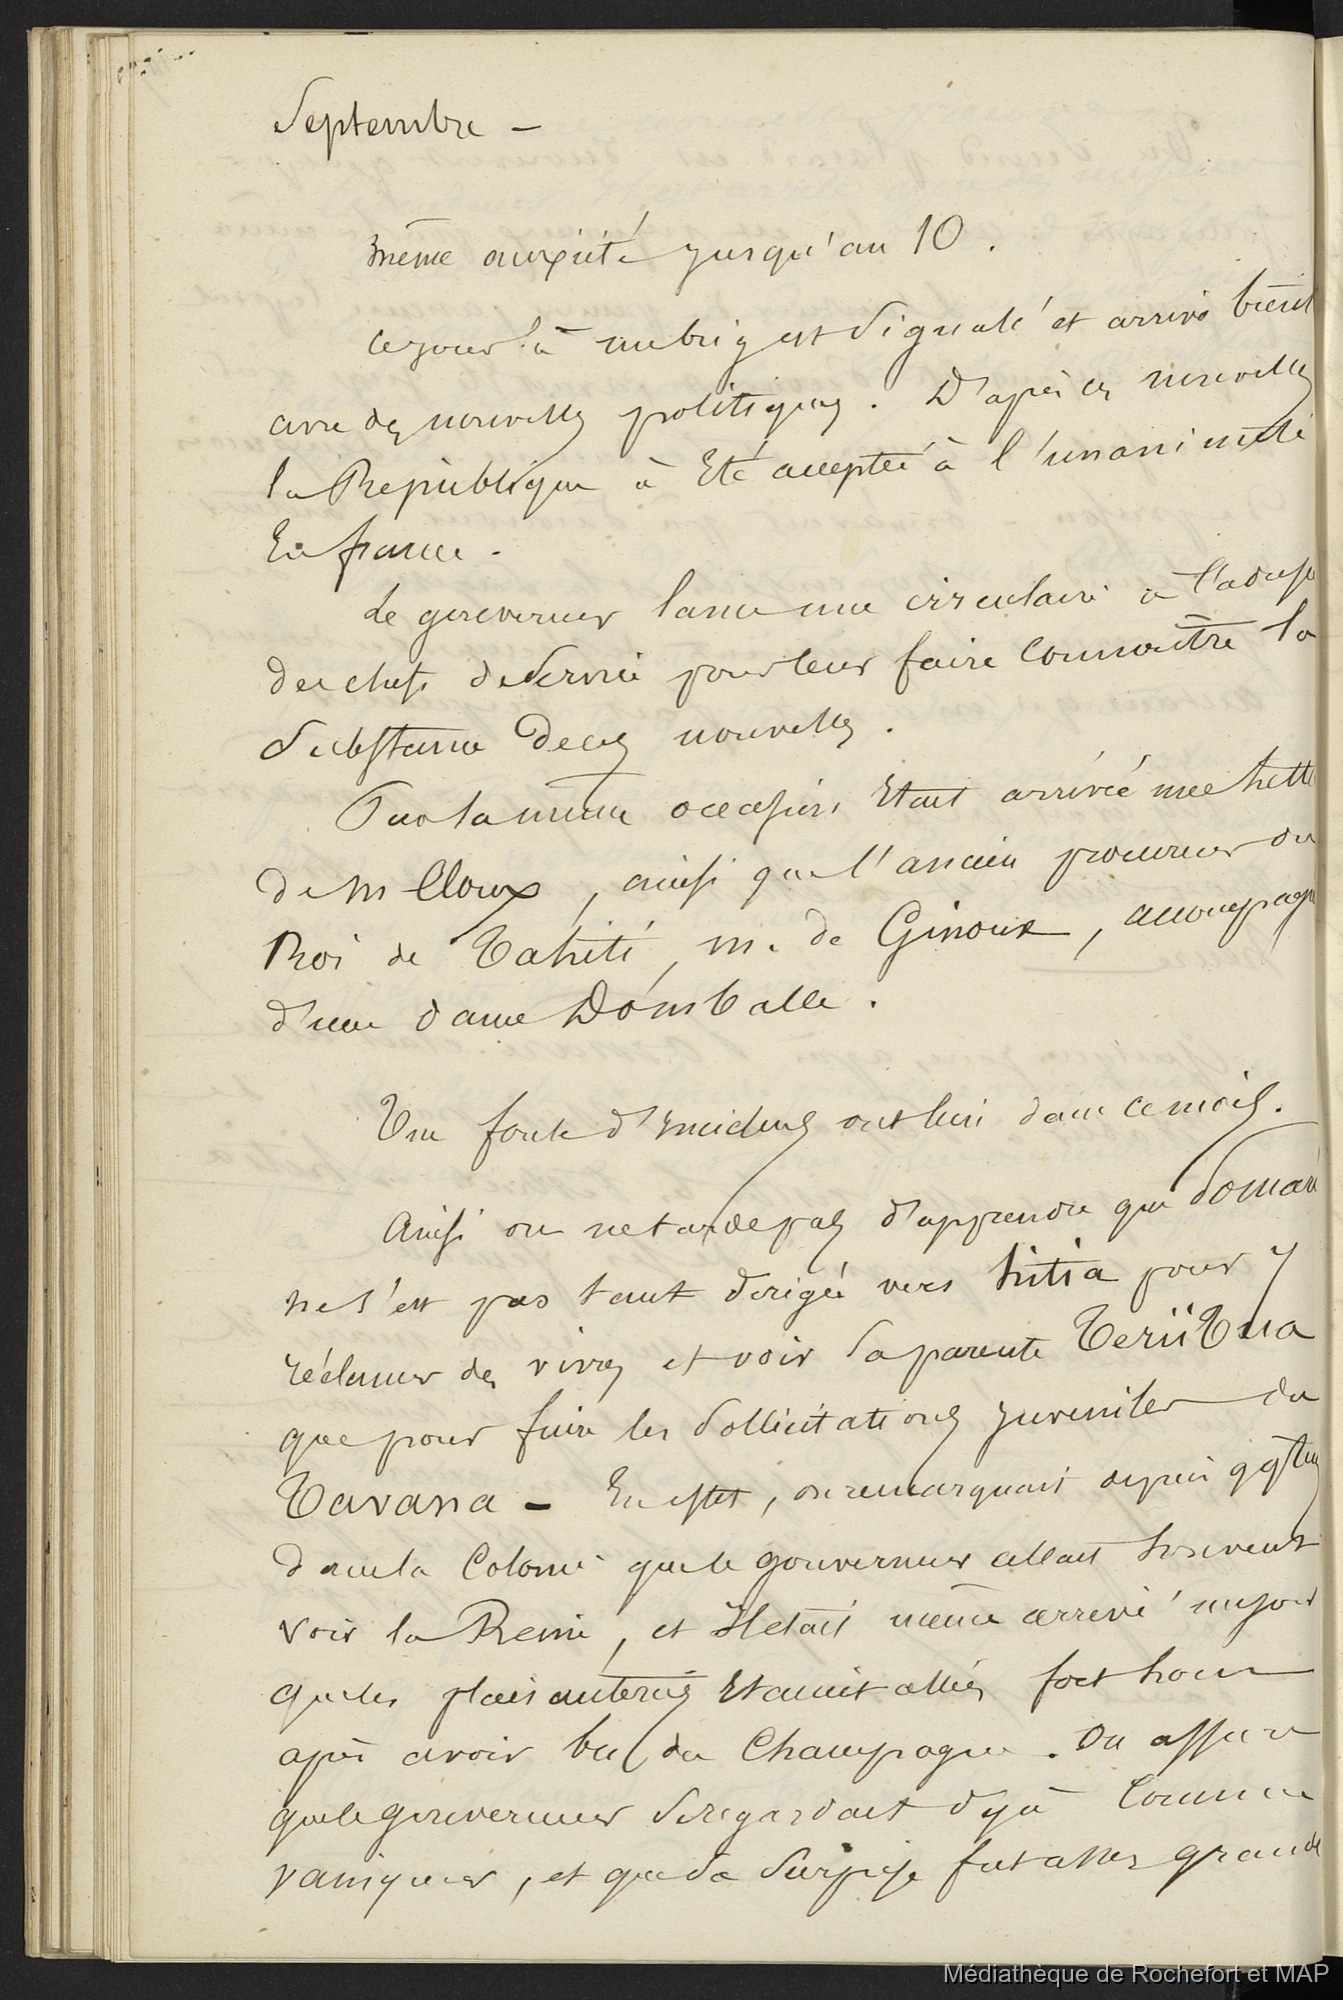 Septembre –
même anxiété jusqu'au 10.
ce jour là un brig est signalé et arrive bient
avec des nouvelles politiques. D'après ces nouvelles
la République à été acceptée à l'unanimité
En france.
Le gouverneur lance une circulaire à l'adresse
des chefs de Service pour leur faire connaître la
Substance de ces nouvelles.
Par la même occasion, Etait arrivée une lettre
de M Cloux, ainsi que l'ancien procureur du
Roi de Tahiti, m. de Ginoux, accompagn
d'une dame Domballe.
Une foule d'incidens ont lieu dans ce mois.
Ainsi on ne tarde pas d'apprendre que Pomaré
ne s'est pas tant dirigée vers hitia pour y
réclamer des vivres et voir sa parente Terii Tua
que pour fuir les Sollicitations juveniles du
Tavana – En effet, on remarquait depuis qq tems
dans la Colonie que le gouverneur allait souvent
voir la Reine, et Il etait même arrivé un jour
que les plaisanteries Etaient allées fort loin
après avoir bu du Champagne. On assure
que le gouverneur se regardait déjà comme
vainqueur, et que sa surprise fut assez grande
Médiathèque de Rochefort et MAP